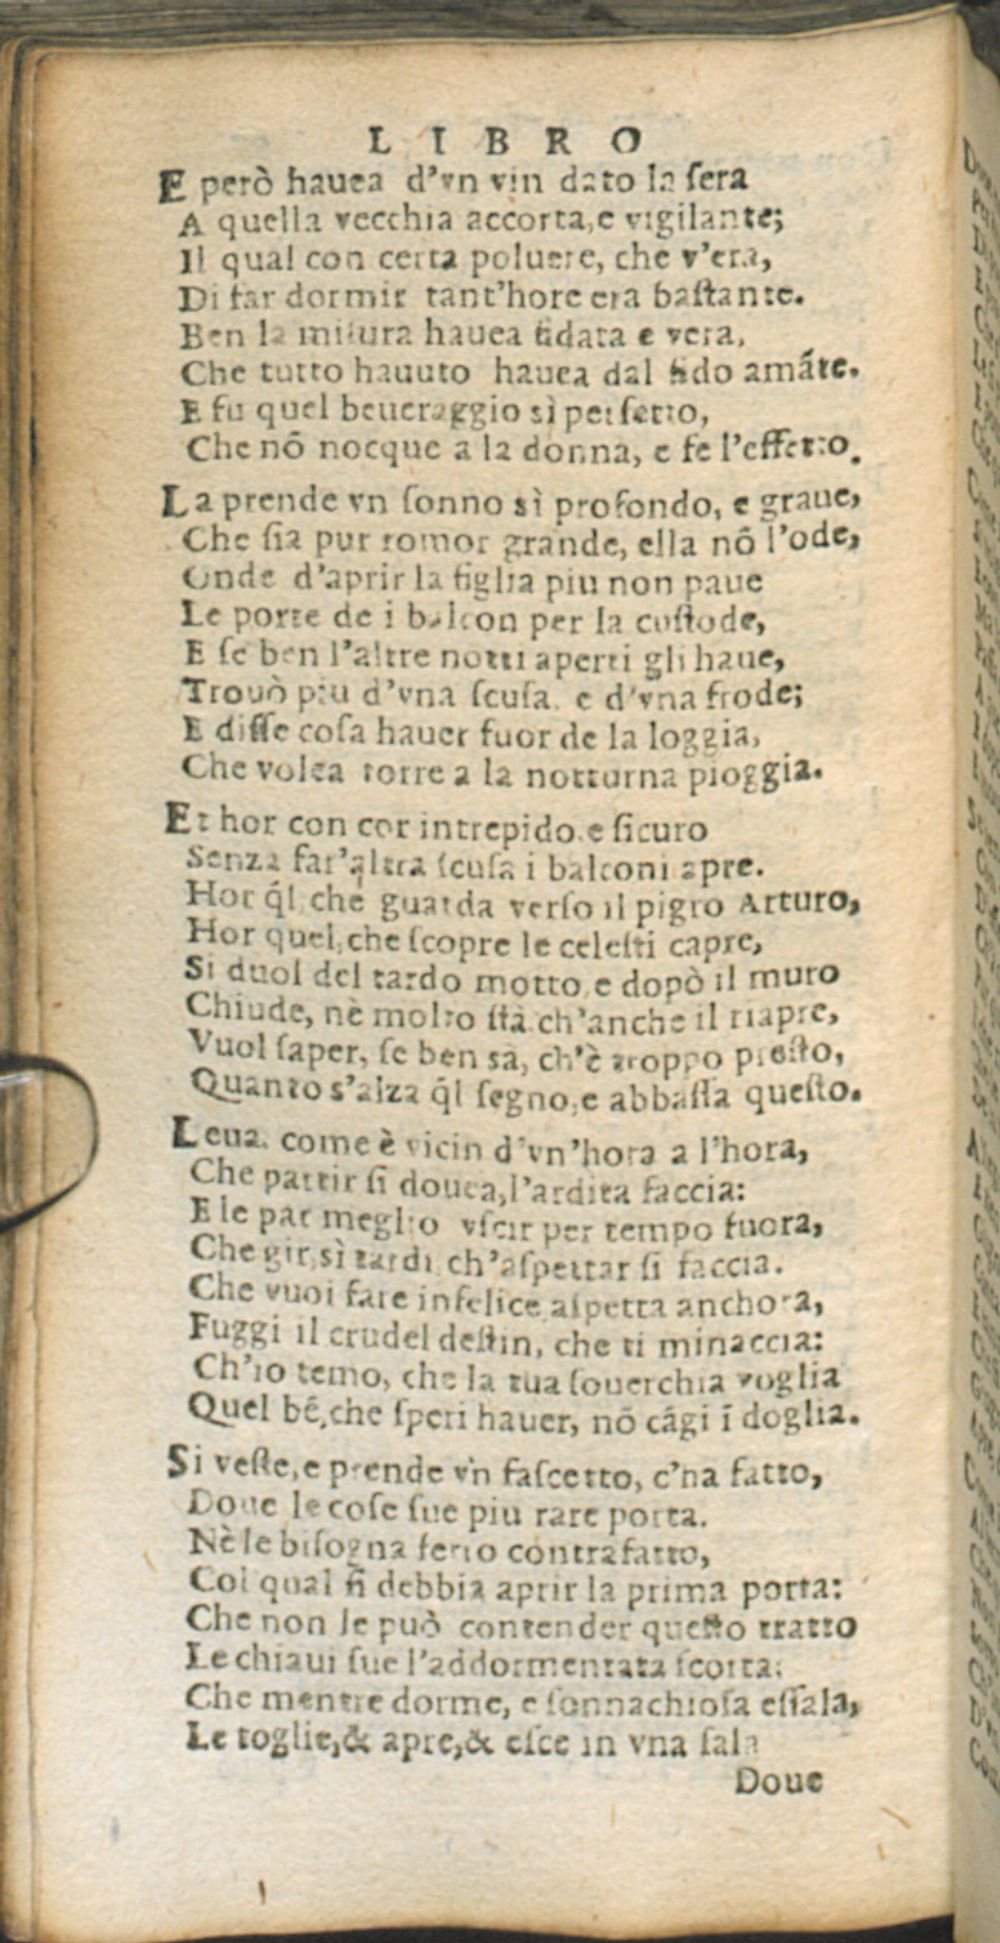 LIBRO
E però hauea d'vn vin dato la ſera
A quella vecchia accorta, e vigilante;
Il qual con certa poluere, che v'era,
Di far dormir tant'hore era baſtante.
Ben la miſura hauea fidata e vera,
Che tutto hauuto hauea dal fido amãte.
E fu quel beueraggio sì perfetto,
Che nõ nocque a la donna, e fe l'effetto.
La prende vn ſonno sì profondo, e graue,
Che ſia pur romor grande, ella nõ l'ode,
Onde d'aprir la figlia piu non paue
Le porte de i balcon per la cuſtode,
E ſe ben l'altre notti aperti gli haue,
Trouò piu d'vna ſcuſa, e d'vna frode;
E diſſe coſa hauer fuor de la loggia,
Che volea torre a la notturna pioggia.
Et hor con cor intrepido, e ſicuro
Senza far'altra ſcuſa i balconi apre.
Hor q̃l, che guarda verſo il pigro Arturo,
Hor quel, che ſcopre le celeſti capre,
Si duol del tardo motto, e dopò il muro
Chiude, nè molto ſtà ch'anche il riapre,
Vuol ſaper, ſe ben sa, ch'è troppo preſto,
Quanto s'alza q̃l ſegno, e abbaſſa queſto.
Leua, come è vicin d'vn'hora a l'hora,
Che partir ſi douea, l'ardita faccia:
E le par meglio vſcir per tempo fuora,
Che gir sì tardi, ch'aſpettar ſi faccia.
Che vuoi fare infelice aſpetta anchora,
Fuggi il crudel deſtin, che ti minaccia:
Ch'io temo, che la tua ſouerchia voglia
Quel bẽ, che ſperi hauer, nõ cãgi ĩ doglia.
Si veſte, e prende vn faſcetto, c'ha fatto,
Doue le coſe ſue piu rare porta.
Nè le biſogna ferro contrafatto,
Col qual ſi debbia aprir la prima porta:
Che non le può contender queſto tratto
Le chiaui ſue l'addormentata ſcorta:
Che mentre dorme, e ſonnachioſa eſſala,
Le toglie, & apre, & eſce in vna ſala
Doue